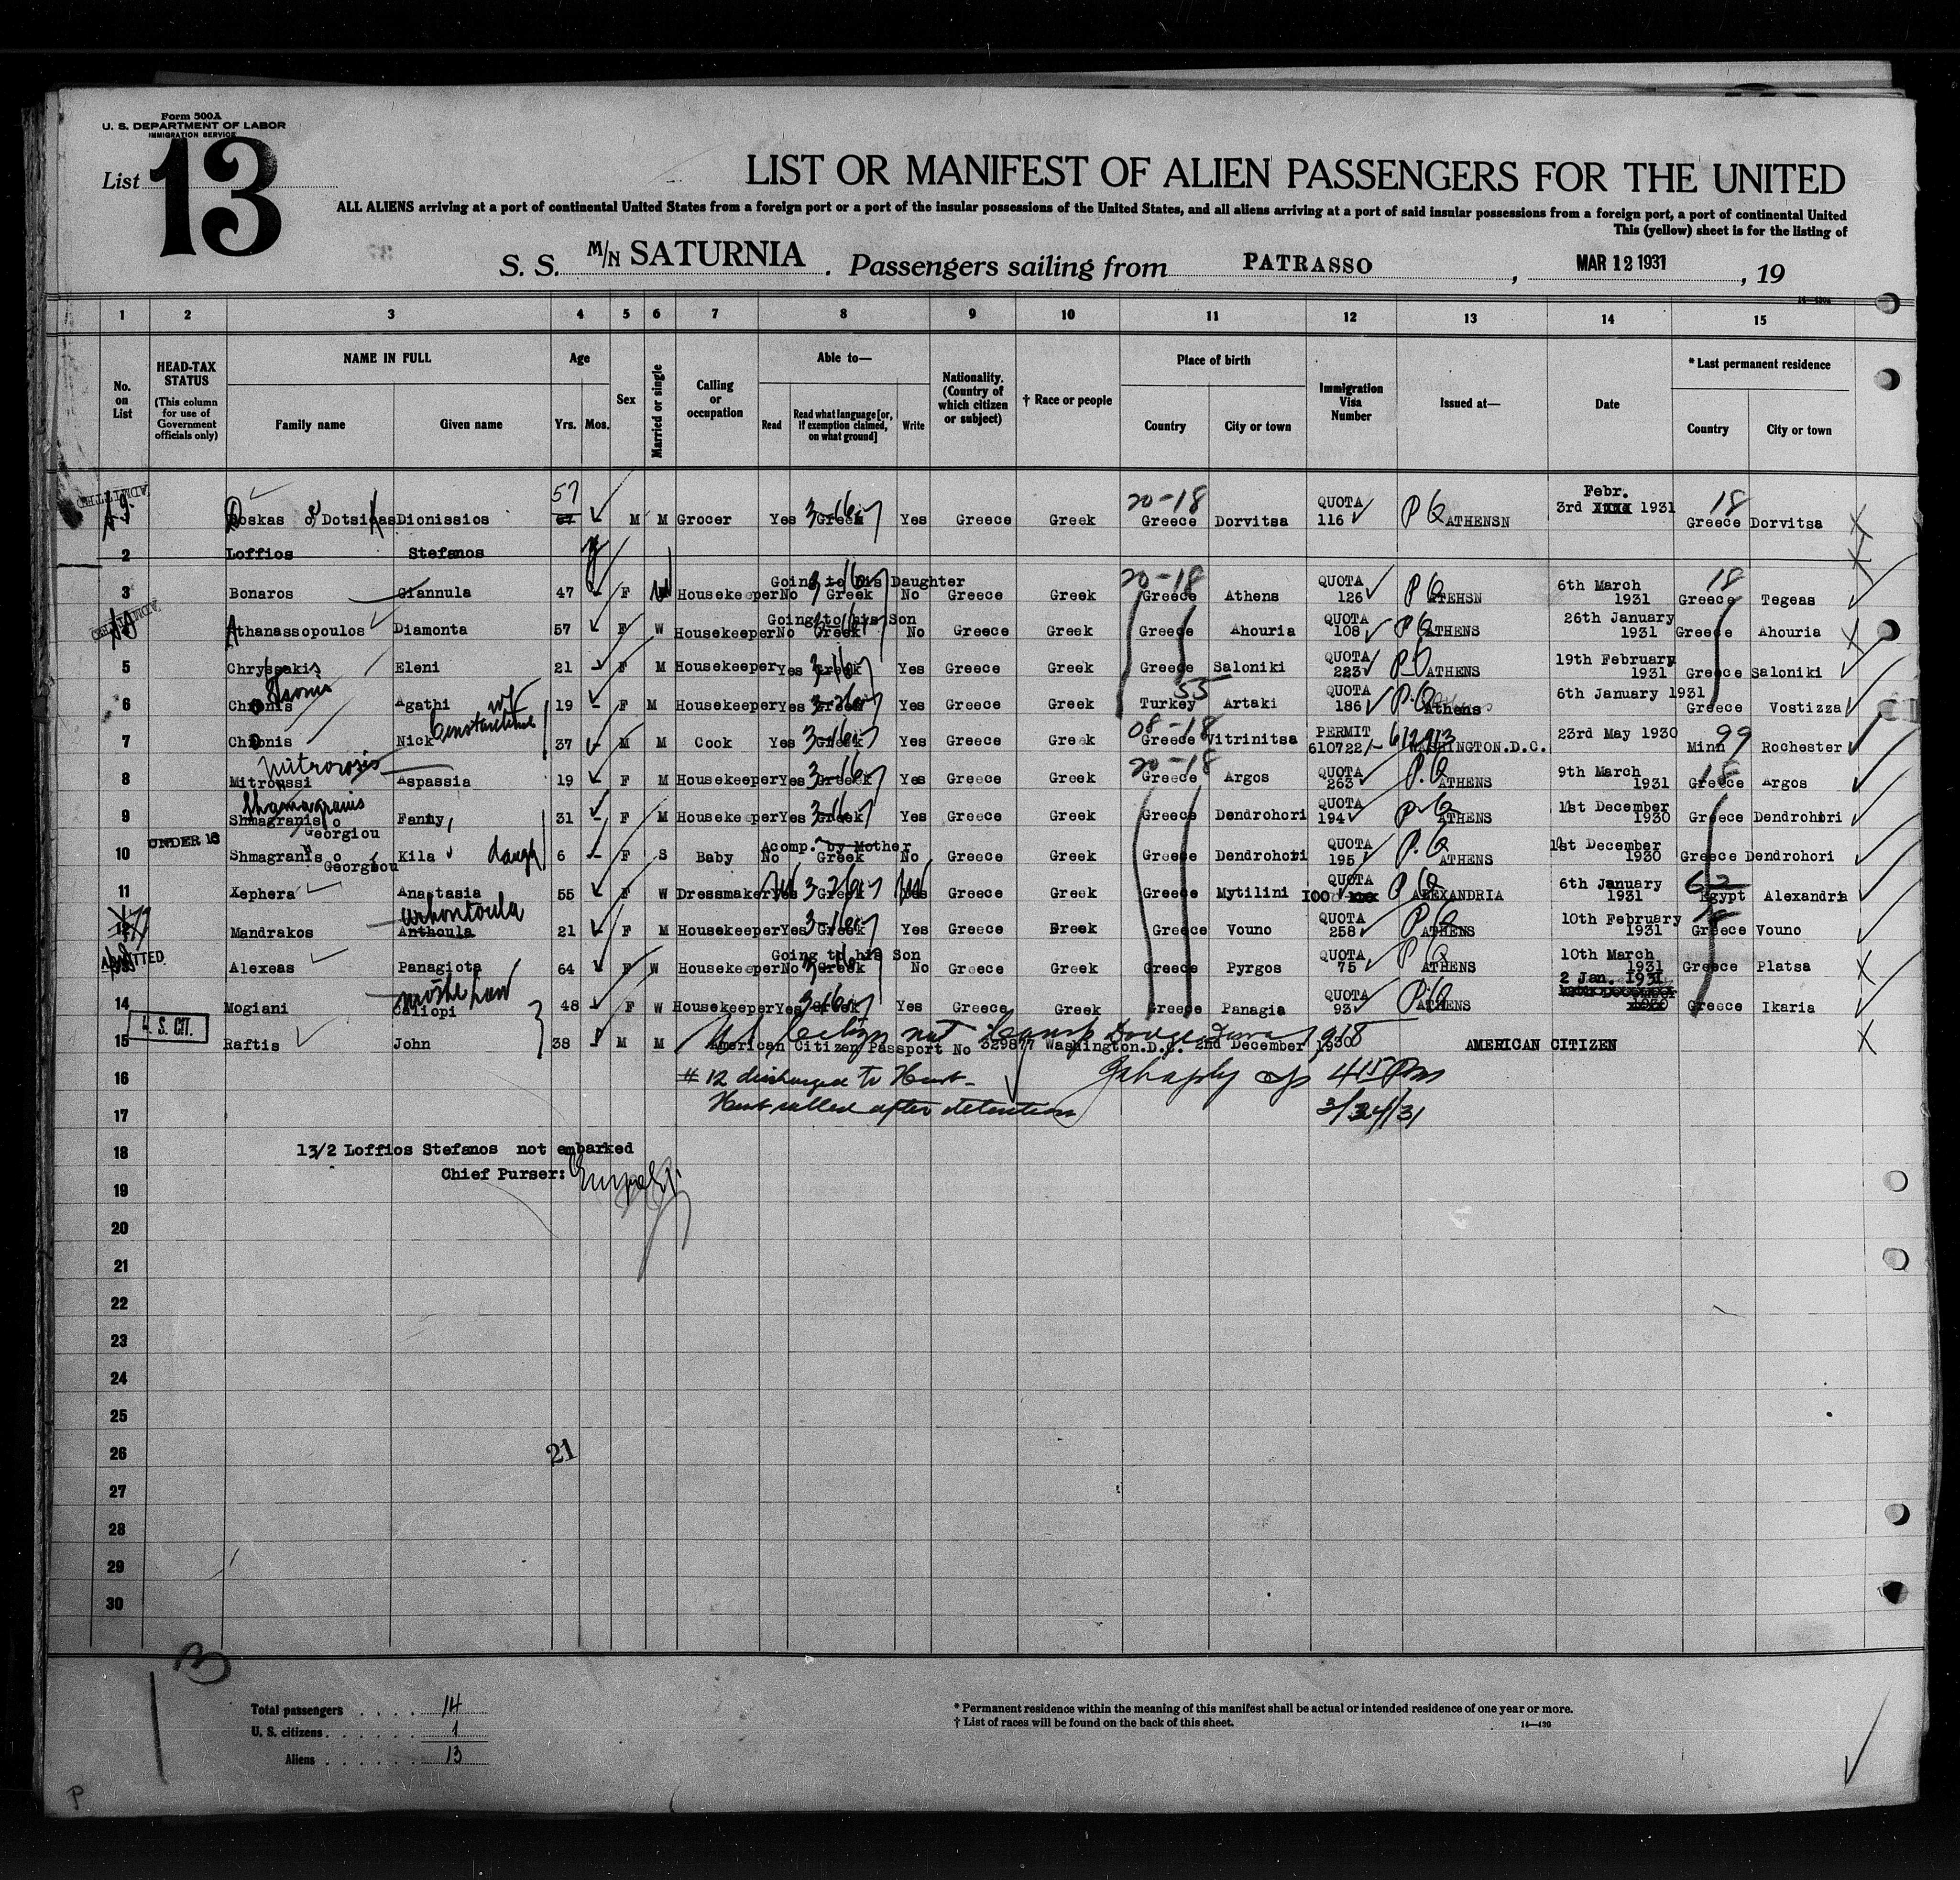 Form 500A
U. S. DEPARTMENT OF LABOR
IMMIGRATION SERVICE
List 13
LIST OR MANIFEST OF ALIEN PASSENGERS FOR THE UNITED
ALL ALIENS arriving at a port of continental United States from a foreign port or a port of the insular possessions of the United States, and all aliens arriving at a port of said insular possessions from a foreign port, a port of continental United
This (yellow) sheet is for the listing of
S. S. M/N SATURNIA. Passengers sailing from PATRASSO, MAR 12 1931, 19
1 2 3 4 5 6 7 8 9 10 11 12 13 14 15
No. on List
HEAD-TAX STATUS (This column for use of Government officials only)
NAME IN FULL Family name Given name
Age Yrs. Mos.
Sex
Married or single
Calling or occupation
Able to— Read Read what language [or, if exemption claimed, on what ground] Write
Nationality. (Country of which citizen or subject)
† Race or people
Place of birth Country City or town
Immigration Visa Number
Issued at—
Date
* Last permanent residence Country City or town
ADMITTED 57 3-16 20-18 Febr. 18
Doskas o Dotsikas Dionissios 67 M M Grocer Yes Greek Yes Greece Greek Greece Dorvitsa QUOTA 116 P Q ATHENSN 3rd 1931 Greece Dorvitsa
2 Loffios Stefanos
Going to his Daughter 20-18 18
3 Bonaros Giannula 47 F Housekeeper No Greek No Greece Greek Greece Athens QUOTA 126 P Q ATEHSN 6th March 1931 Greece Tegeas
ADMITTED Going to his Son
Athanassopoulos Diamonta 57 F W Housekeeper No Greek No Greece Greek Greece Ahouria QUOTA 108 P Q ATHENS 26th January 1931 Greece Ahouria
5 Chryssaki Eleni 21 F M Housekeeper Yes Greek Yes Greece Greek Greece Saloniki QUOTA 223 P Q ATHENS 19th February 1931 Greece Saloniki
6 Chronis Agathi wf 19 F M Housekeeper Yes Greek Yes Greece Greek Turkey 55 Artaki QUOTA 186 P.Q Athens 6th January 1931 Greece Vostizza
7 Chronis Nick Constantine 37 M M Cook Yes Greek Yes Greece Greek Greece 08-18 Vitrinitsa PERMIT 610722 WASHINGTON.D.C. 23rd May 1930 Minn 99 Rochester
Mitrorosis
8 Mitroussi Aspassia 19 F M Housekeeper Yes Greek Yes Greece Greek 20-18 Greece Argos QUOTA 263 P.Q ATHENS 9th March 1931 18 Greece Argos
Shmagranis
9 Shmagranis o Georgiou Fanny 31 F M Housekeeper Yes Greek Yes Greece Greek Greece Dendrohori QUOTA 194 P Q ATHENS 1st December 1930 Greece Dendrohori
UNDER 16 Acomp. by Mother
10 Shmagranis o Georgiou Kila daugh 6 F S Baby No Greek No Greece Greek Greece Dendrohori QUOTA 195 P.Q ATHENS 1st December 1930 Greece Dendrohori
11 Xephera Anastasia 55 F W Dressmaker Yes Greek Yes Greece Greek Greece Mytilini QUOTA 100 P Q ALEXANDRIA 6th January 1931 62 Egypt Alexandria
Arhontoula
12 Mandrakos Anthoula 21 F M Housekeeper Yes Greek Yes Greece Greek Greece Vouno QUOTA 258 P Q ATHENS 10th February 1931 Greece Vouno
ADMITTED Going to his Son
Alexeas Panagiota 64 F W Housekeeper No Greek No Greece Greek Greece Pyrgos QUOTA 75 P Q ATHENS 10th March 1931 Greece Platsa
14 Mogiani Caliopi 48 F W Housekeeper Yes Greek Yes Greece Greek Greece Panagia QUOTA 93 P Q ATHENS 2 Jan. 1931 Greece Ikaria
U. S. CIT.
15 Raftis John 38 M M American Citizen Passport No 329877 Washington.D.C. 2nd December 1930 AMERICAN CITIZEN
16 # 12 discharged to Husb- 4 15 PM
17 Husb called after detention 3/24/31
18 13/2 Loffios Stefanos not embarked
Chief Purser:
19
20
21
22
23
24
25
26 21
27
28
29
30
Total passengers . . . . 14
U. S. citizens . . . . . . 1
Aliens . . . . . . 13
* Permanent residence within the meaning of this manifest shall be actual or intended residence of one year or more.
† List of races will be found on the back of this sheet. 14—420
P